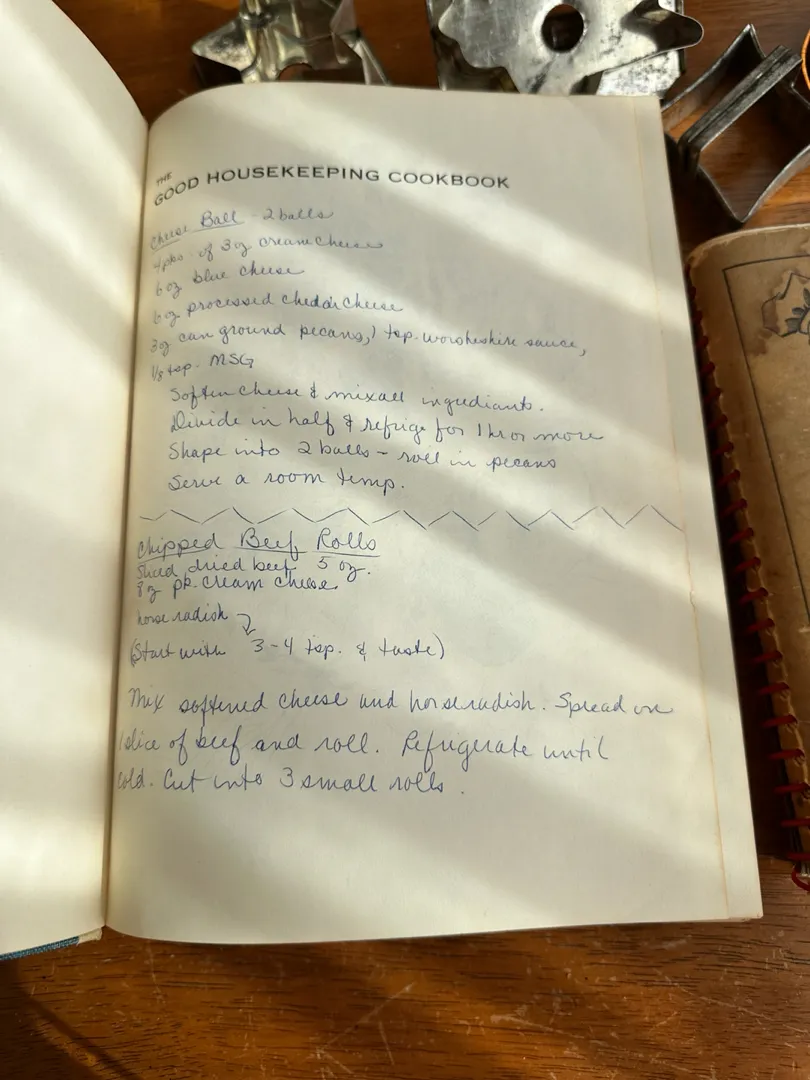 THE
GOOD HOUSEKEEPING COOKBOOK
Cheese Ball - 2 balls
4 pks. of 3 oz cream cheese
6 oz blue cheese
6 oz processed cheddar cheese
3 oz can ground pecans, 1 tsp. worsheshire sauce,
1/8 tsp. MSG
Soften cheese & mix all ingrediants.
Divide in half & refrige for 1 hr or more
Shape into 2 balls - roll in pecans
Serve a room temp.
Chipped Beef Rolls
Sliced dried beef 5 oz.
8 oz pk. cream cheese
horseradish
(Start with 3-4 tsp. & taste)
Mix softened cheese and horseradish. Spread on
1 slice of beef and roll. Refrigerate until
cold. Cut into 3 small rolls.